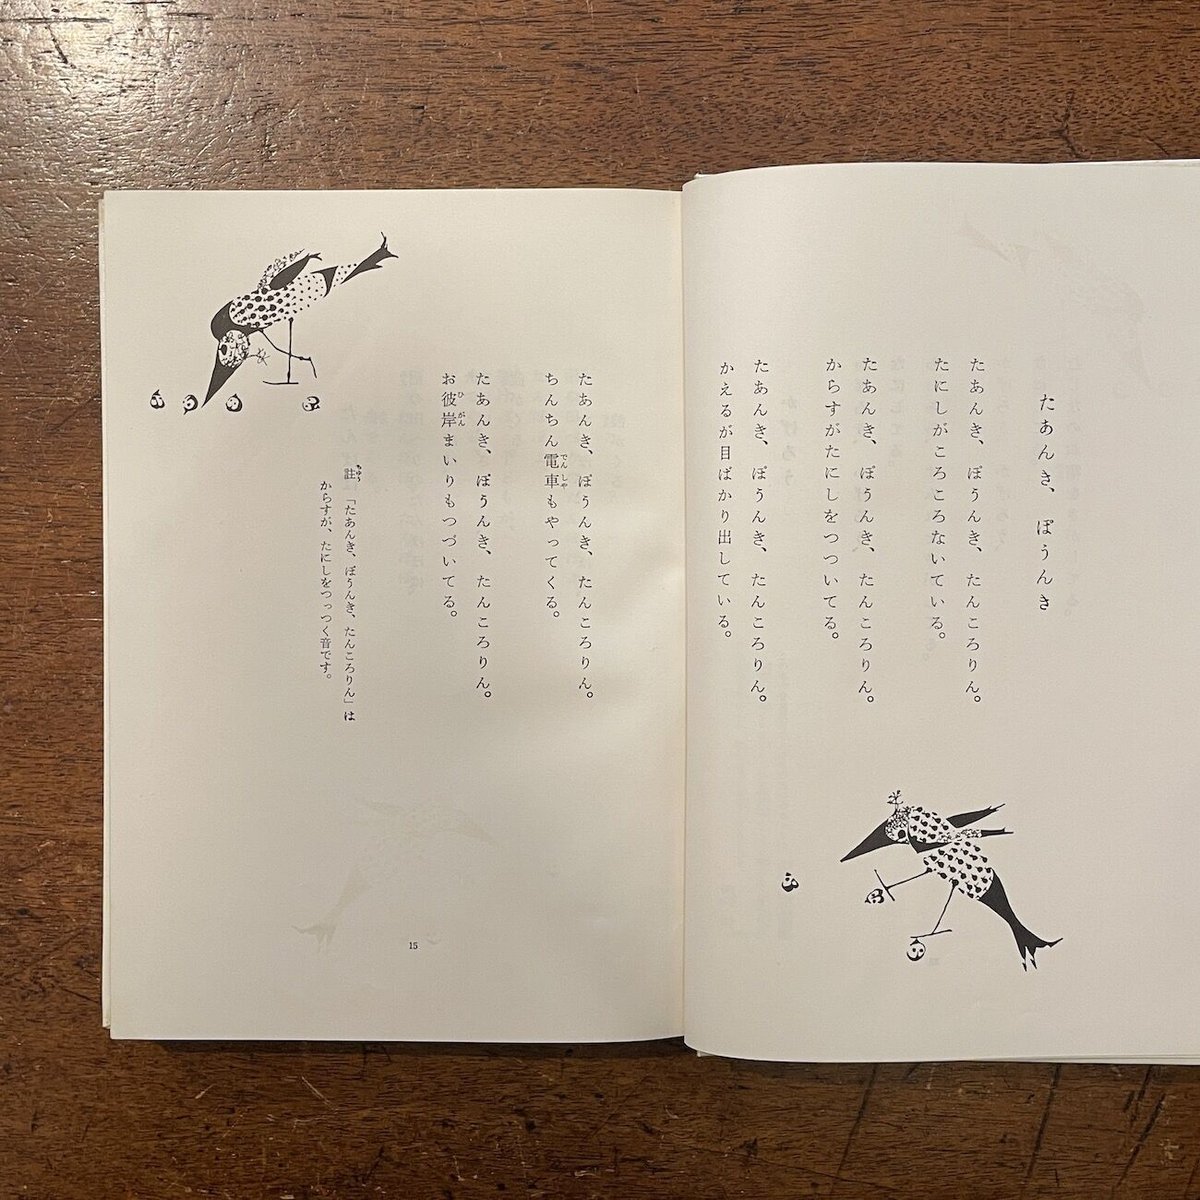 たあんき、ぽうんき
たあんき、ぽうんき、たんころりん。
たにしがころころないている。
たあんき、ぽうんき、たんころりん。
からすがたにしをつついてる。
たあんき、ぽうんき、たんころりん。
かえるが目ばかり出している。
たあんき、ぽうんき、たんころりん。
ちんちん電車もやってくる。
たあんき、ぽうんき、たんころりん。
お彼岸まいりもつづいてる。
註 「たあんき、ぽうんき、たんころりん」は
からすが、たにしをつっつく音です。
15